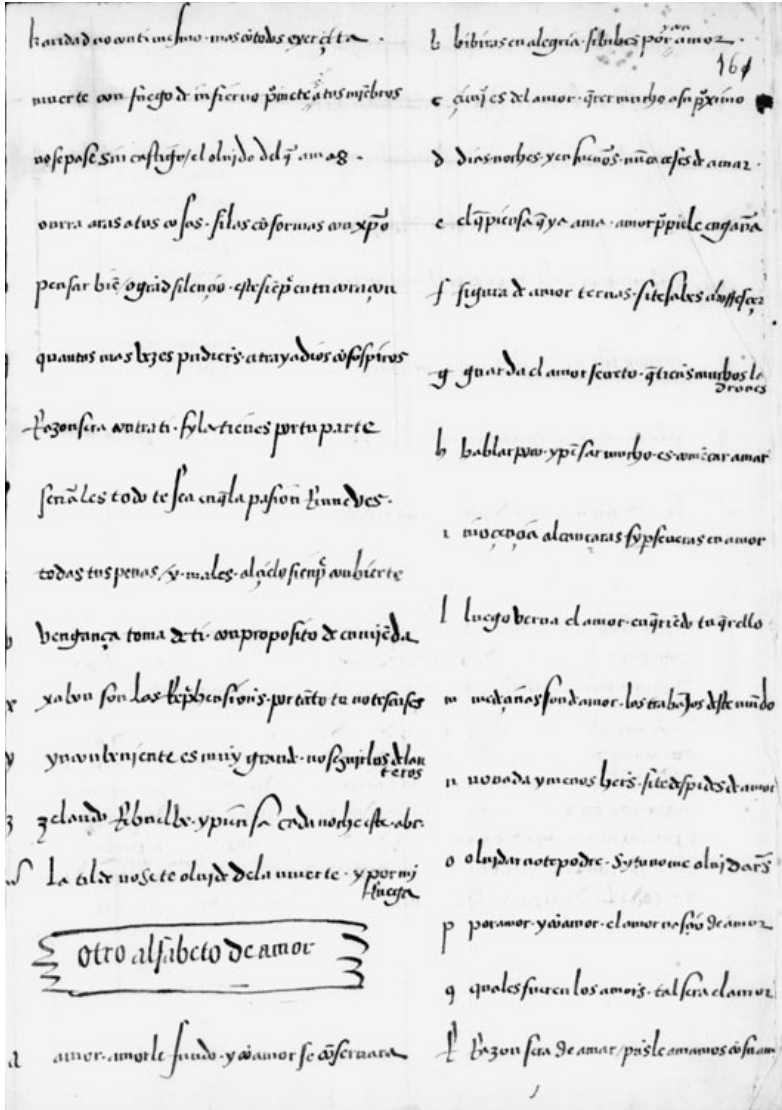 karidad no contimismo · mas cõ todos exerçita ·
muerte con fuego de infierno p̃mete a tus miẽbros
no se pase sin castigo / el oluido del q̃ amas ·
onrra aras a tus cosas · si las cõformas con xp̃o
pensar biẽ / o grãd silençio · este siẽp̃ en tu coraçon
quantas mas bezes pudierš · atray a dios cõ sospiros
Razon sera contra ti · sy la tienes por tu parte
señales todo te sea en q̃ la pasion Renueves ·
todas tus penas / y males · al çielo siẽnp̃ conbierte
v vengança toma de ti · con proposito de emiẽda
x xabon son las Rep̃hensionis · por tãto tu no te scuses
y ynconbeniente es muy grande · no seguir los delan
teros
z zelando Rebuelbe · y piensa cada noche este · abc ·
La tilde no se te oluide de la muerte · y por mi
Ruega
otro alfabeto de amor
a amor · amor le fundo · y cõ amor se cõseruara
161
b bibiras en alegria · si bibes por amor ·
c çimiẽ es del amor · q̃rer mucho a su p̃ximo
d dias noches · y en sueños · nũca çeses de amar ·
e el q̃ piensa q̃ ya ama · amor p̃pio le engaña
f figura de amor ternas · si te sabes
g guarda el amor secreto · q̃ tienes muchos la
drones
h hablar poco · y pẽsar mucho · es comẽçar amar
i inoçençia alcançaras sy p̃seueras en amor
l luego verna el amor · en q̃riẽdo tu q̃rello ·
m mediçinas son de amor · los trabajos deste mũdo
n no nada y menos herš · si te despides de amor
o oluidar no te podre · sy tu no me oluidarš
p por amor · y cõ amor · el amor de amor
q quales fueren los amorš · tal sera el amor
R Razon sera de amar / pues le amamos cõ su am